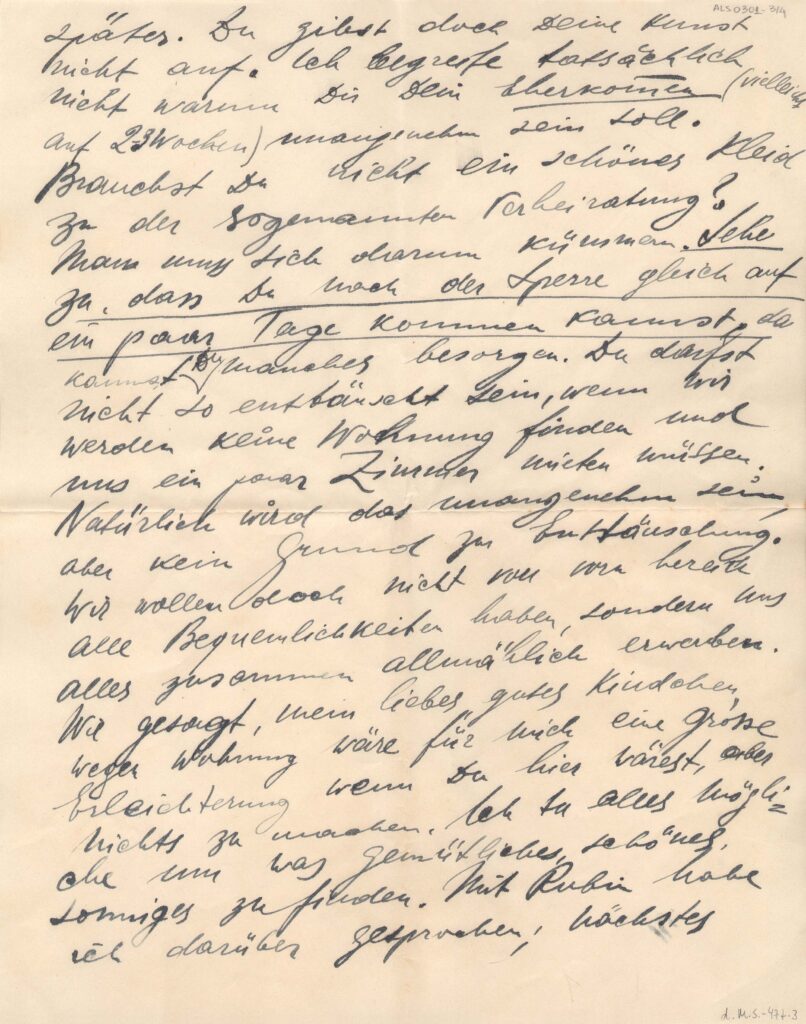 ALS0301-3/4
später. Du gibst doch Deine Kunst
nicht auf. Ich begreife tatsächlich
nicht warum Dir Dein Eherkommen (vielleicht
auf 2-3 Wochen) unangenehm sein soll.
Brauchst Du nicht ein schönes Kleid
zu der sogenannten Verheiratung?
Man muss sich darum kümmern. Sehe
zu, dass Du nach der Sperre gleich auf
ein paar Tage kommen kannst, da
kannst Du manches besorgen. Du darfst
nicht so enttäuscht sein, wenn wir
werden keine Wohnung finden und
uns ein paar Zimmer mieten müssen.
Natürlich wird das unangenehm sein,
aber kein Grund zur Enttäuschung.
Wir wollen doch nicht von vorn herein
alle Bequemlichkeiten haben, sondern uns
alles zusammen allmählich erwerben.
Wie gesagt, mein liebes gutes Kindchen,
wegen Wohnung wäre für mich eine große
Erleichterung wenn Du hier wärest, aber
nichts zu machen. Ich tu alles mögli=
che um was gemütliches, schönes,
sonniges zu finden. Mit Rubin habe
ich darüber gesprochen, nächstes
L.M.S.-47+-3